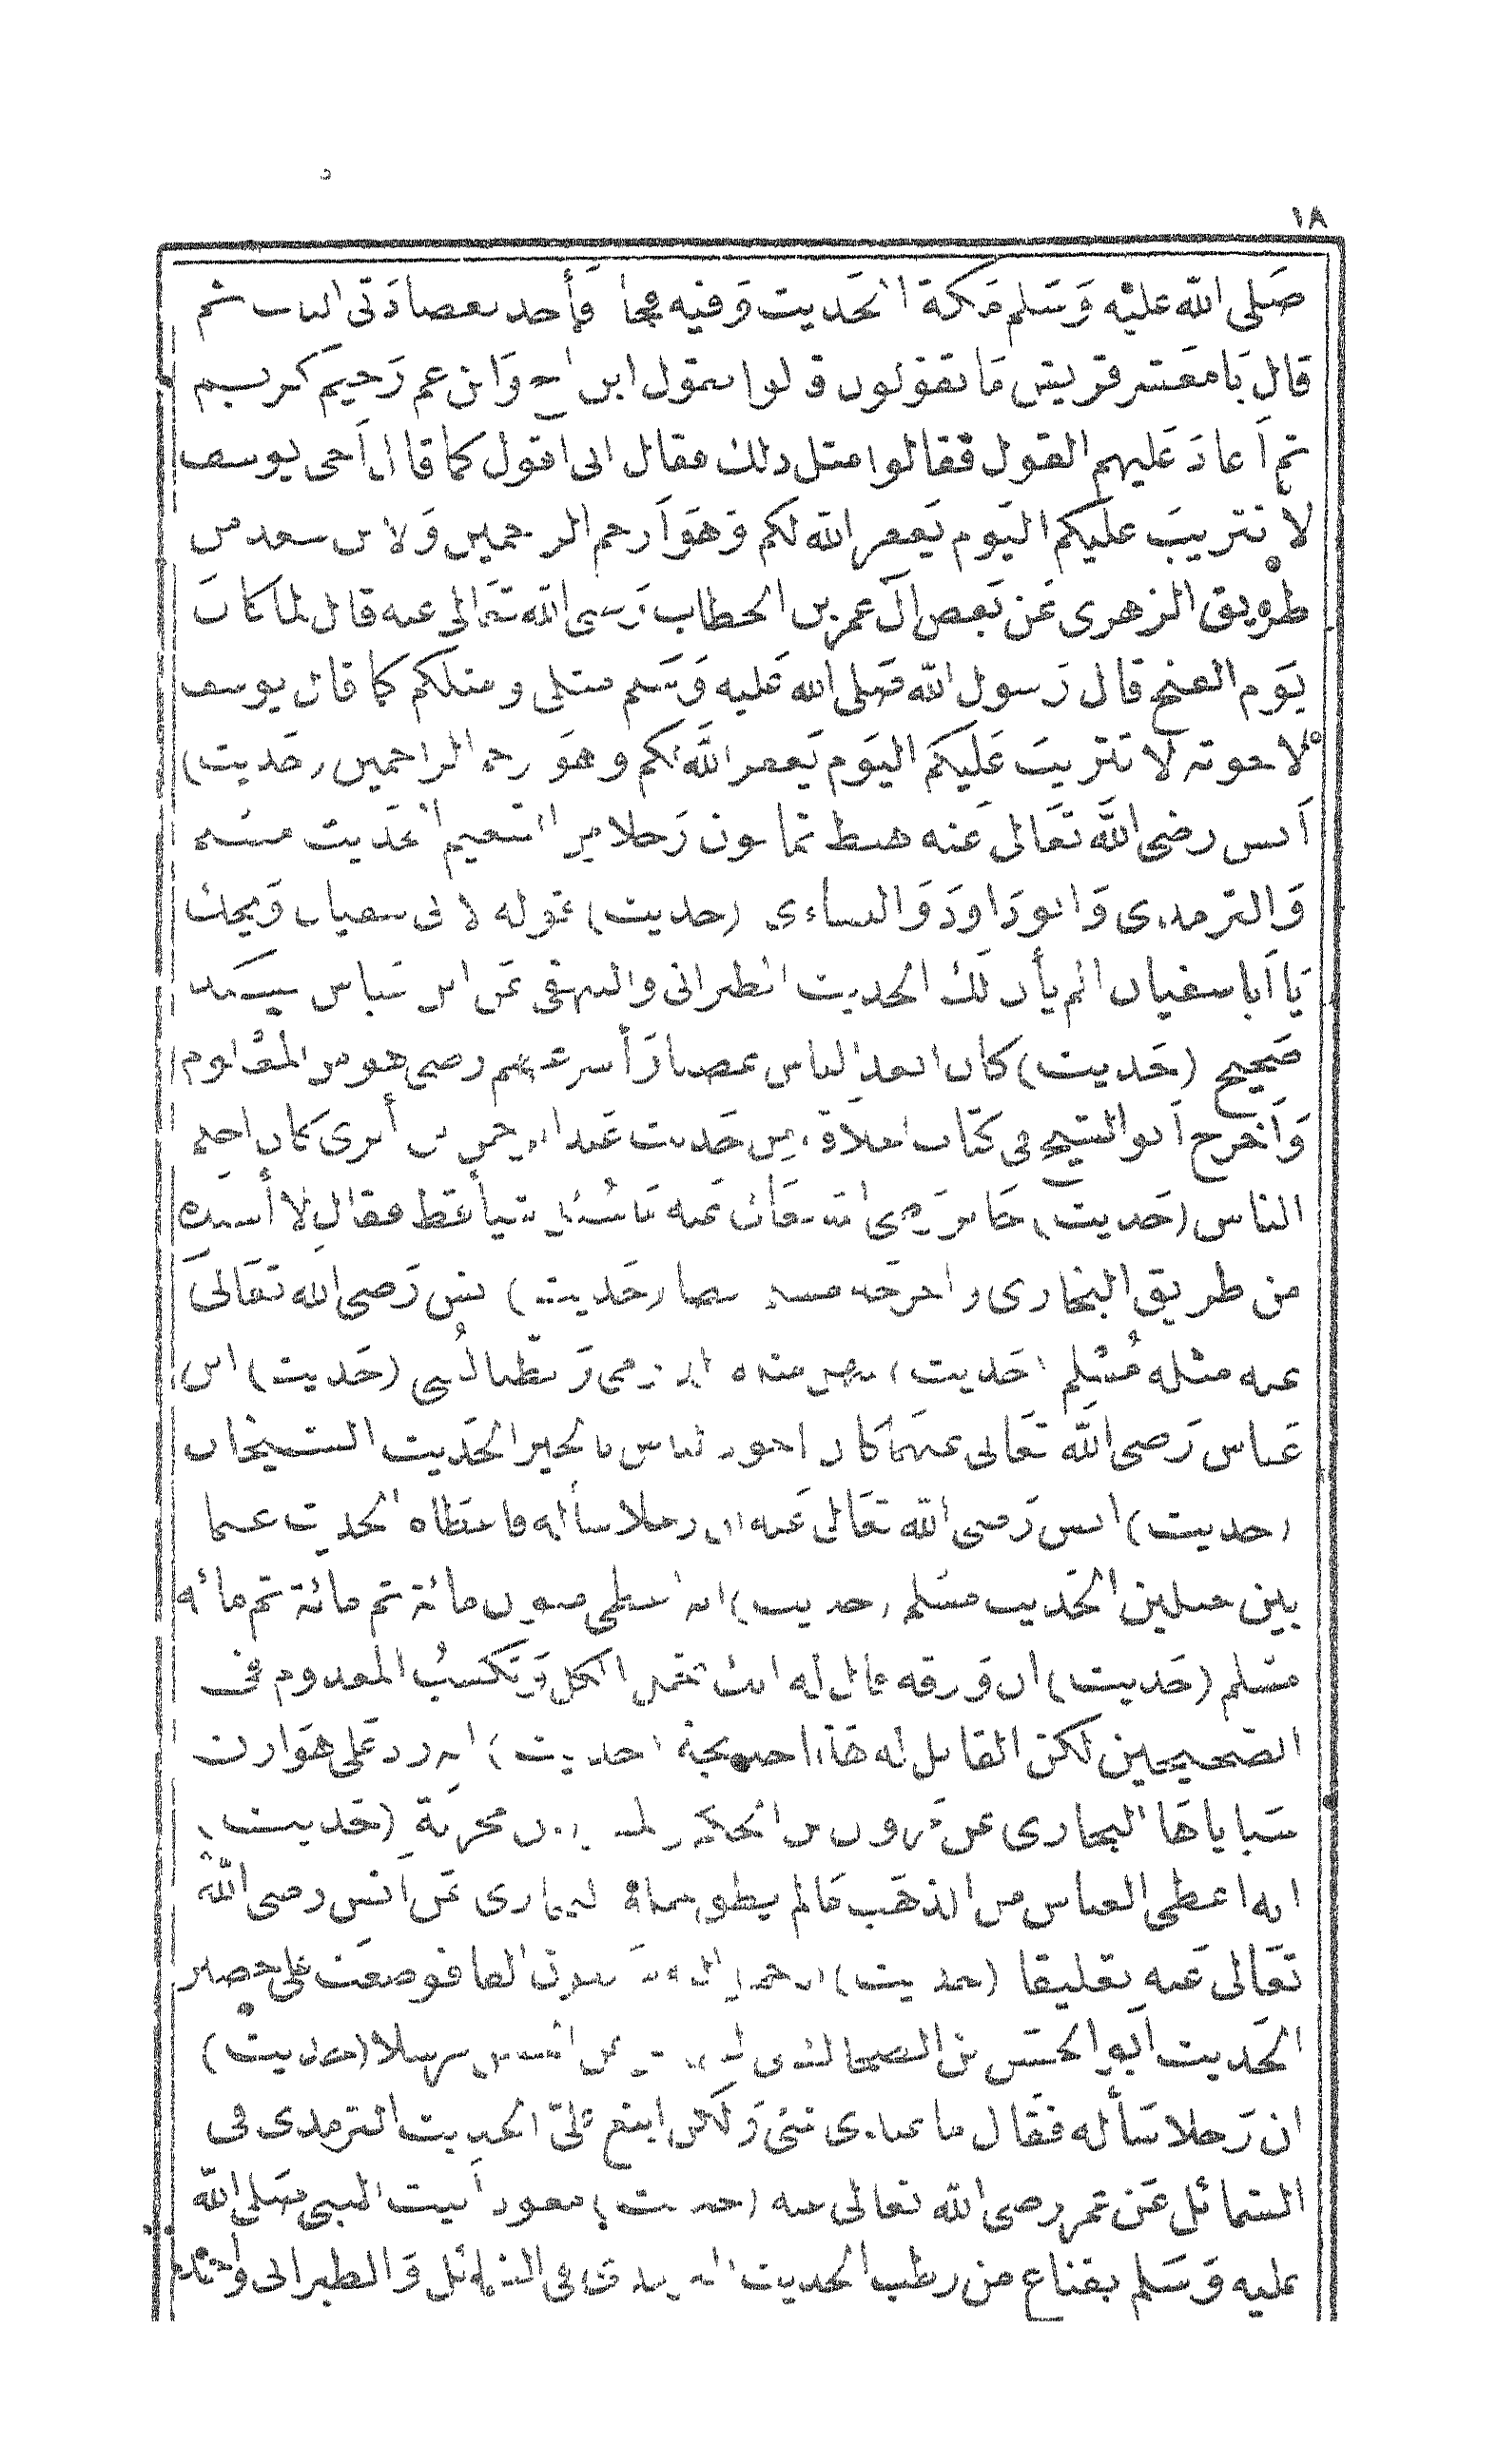 ١٨
صَلى الله عليْه وَسَلم مَكة الحَديث وَفيه فجاء فأخد بعضادَتى الباب ثم
قال يَا مَعشر قريش مَا تقولون قالوا نقول ابن اخ وَابن عم رَحيم كريم
ثم أعادَ عَليهم القول فقالوا مثل ذلك فقال انى أقول كما قال أخى يوسف
لا تثريبَ عليكم اليَوم يَغفر الله لكم وَهوَ أرحم الرحمين وَلابن سعد من
طريق الزهرى عَن بَعض آل عمر بن الخطاب رَضى الله تعَالى عنه قال لما كانَ
يَوم الفتح قال رَسول الله صَلى الله عَليه وَسَلم مثلى ومثلكم كما قال يوسف
لاخوته لا تثريبَ عَليكم اليَوم يَغفر الله لكم وهوَ رحم الراحمين (حَديث)
أنس رضى الله تعَالى عَنه هبط ثمانون رَجلا من التنعيم الحَديث مسلم
وَالترمذى وَابو دَاودَ وَالنساءى (حديث) قوله لابى سفيان وَيحك
يَا أبا سفيان الم يأن لك الحديث الطبرانى والبيهقى عَن ابن عَباس بسند
صَحيح (حَديث) كان ابعد الناس غضبا وَأسرعهم رضى هو من المعلوم
وَأخرج أبو الشيخ فى كتاب اخلاق من حَديث عَبد الرحمن بن أبزى كان احلم
الناس (حَديث) جَابر رَضى الله تعَالى عَنه مَا سُئل شيأ قط فقال لا أسنده
من طريق البخارى واخرجَه مسلم ايضا (حَديث) انس رَضى الله تعَالىَ
عنه مثله مُسْلم (حَديث) سهل مثله الدارمى وَالطيالسى (حَديث) ابن
عَباس رَضى الله تعَالى عنهمَا كان اجود الناس بالخير الحَديث الشيخان
(حديث) انس رَضى الله تعَالى عَنه ان رجلا سأله فاعطاه الحديث غنما
بين جبلين الحَديث مسَلم (حديث) انه اعطى صفوان مائة ثم مائة ثم مائة
مسَلم (حَديث) ان وَرقه قال له انك تحمل الكل وَتكسبُ المعدوم فى
الصَحيحين لكن القائل له هَذا خديجة (حديث) انه رد عَلى هوَازن
سَباياهَا البخارى عن مَروان بن الحكم والمسور بن مخرمَة (حَديث)
انه اعطى العباس من الذهَب مَا لم يطق حمله البخارى عَن انس رضى الله
تعَالى عَنه تعليقا (حديث) انه حمل اليه تسعون الفا فوضعَت عَلى حصير
الحَديث أبو الحَسَن بن الضحاك فى الشمائل عن الحسن مرسلا (حديث)
ان رَجلا سَأله فقال ما عندى شئ وَلكن ابتع عَلىّ الحديث الترمذى فى
الشمائل عَن عمر رضى الله تعالى عنه (حديث) معوذ أتيت النبى صَلى الله
عليه وَسَلم بقناع من رطب الحديث الترمذى فى الشمائل وَالطبرانى وَأحمد